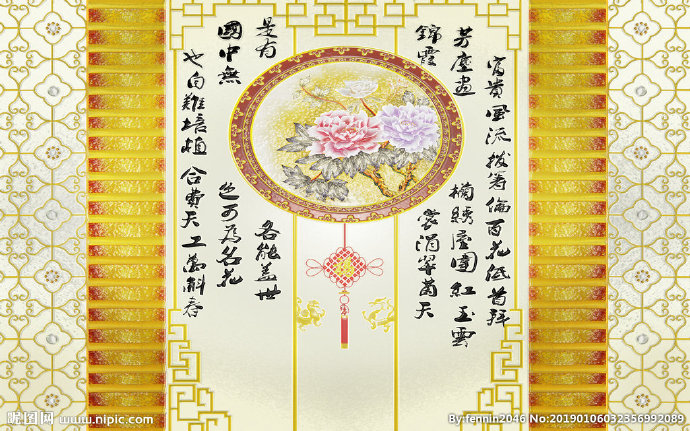 富貴風流拔等倫百花低首拜
芳塵畫
欄綉屋圍紅玉雲
錦霞
裳涓翠茵天
是有
各能蓋世
國中無
色可為名花
也自難培植合費天工萬斛春
昵图网 www.nipic.com
By:fennin2046 No:20190106032356992089